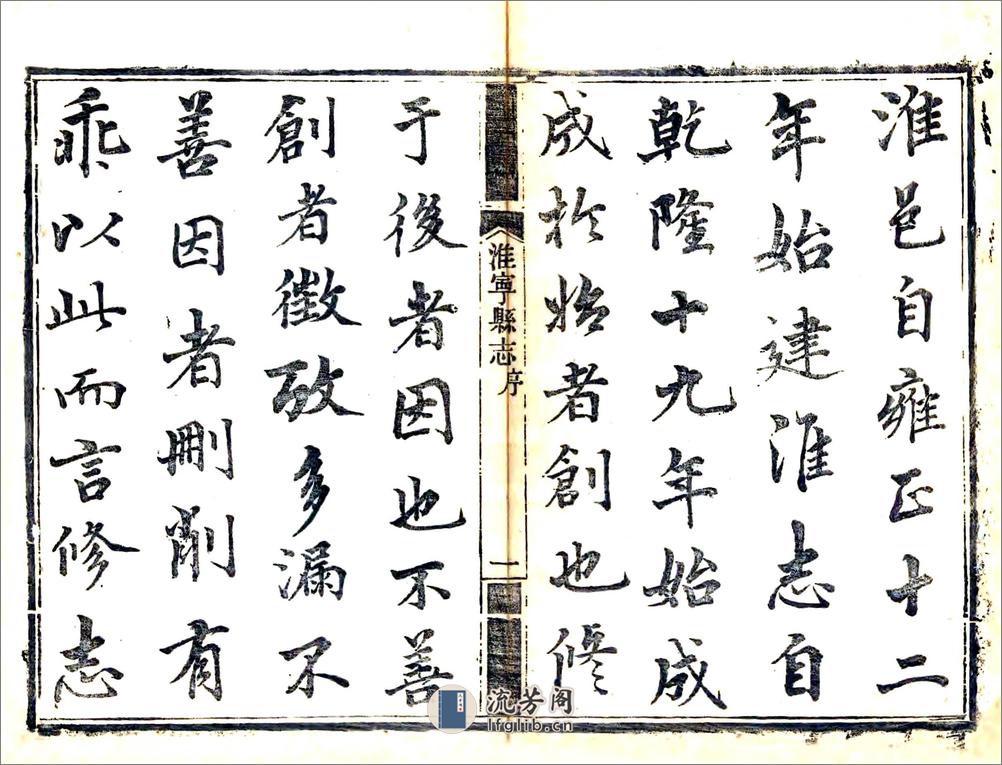 淮邑自雍正十二
年始建淮志自
乾隆十九年始成
成於始者創也修
淮寧縣志
序
二
于後者因也不善
創者徵攷多漏不
善因者刪削有
乖以此而言修志
流芳阁
lfglib.cn